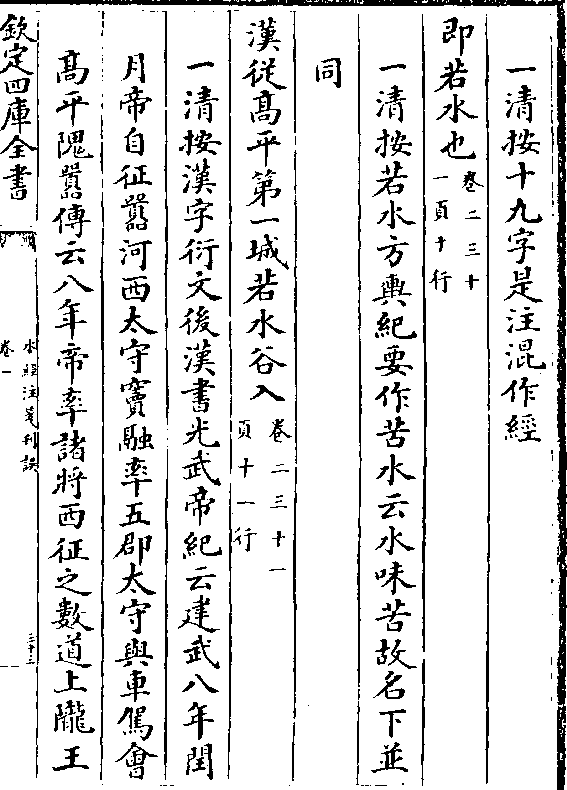 一清按十九字是注混作經
即若水也卷二三十
一頁十行
一清按若水方輿紀要作苦水云水味苦故名下並
同
漢從髙平第一城若水谷入卷二三十一
頁十一行
一清按漢字衍文後漢書光武帝紀云建武八年閏
月帝自征囂河西太守竇融率五郡太守與車駕會
髙平隗囂傳云八年帝率諸將西征之數道上隴王
欽定四庫全書
水經注箋刋誤
卷一
三十三